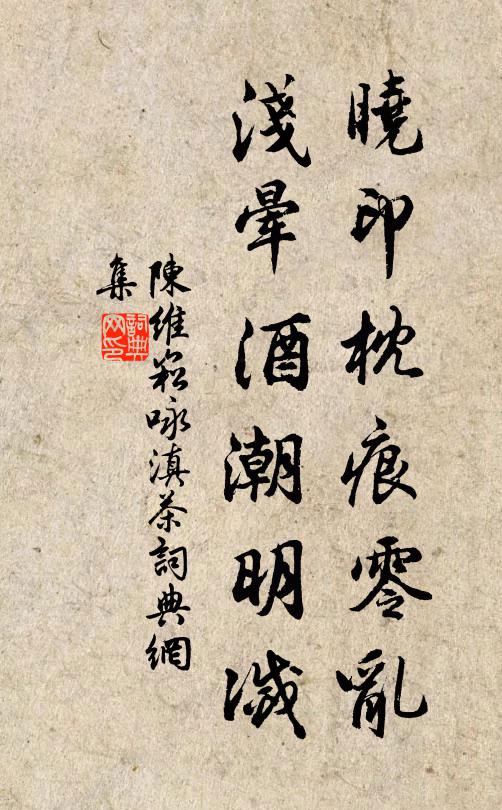 曉印枕痕零亂
淺暈酒潮明滅
陳維崧咏滇茶詞典網
集
詞典网印